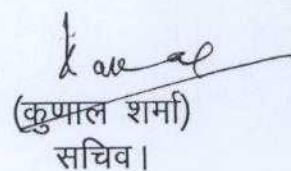 (कुणाल शर्मा)
सचिव।